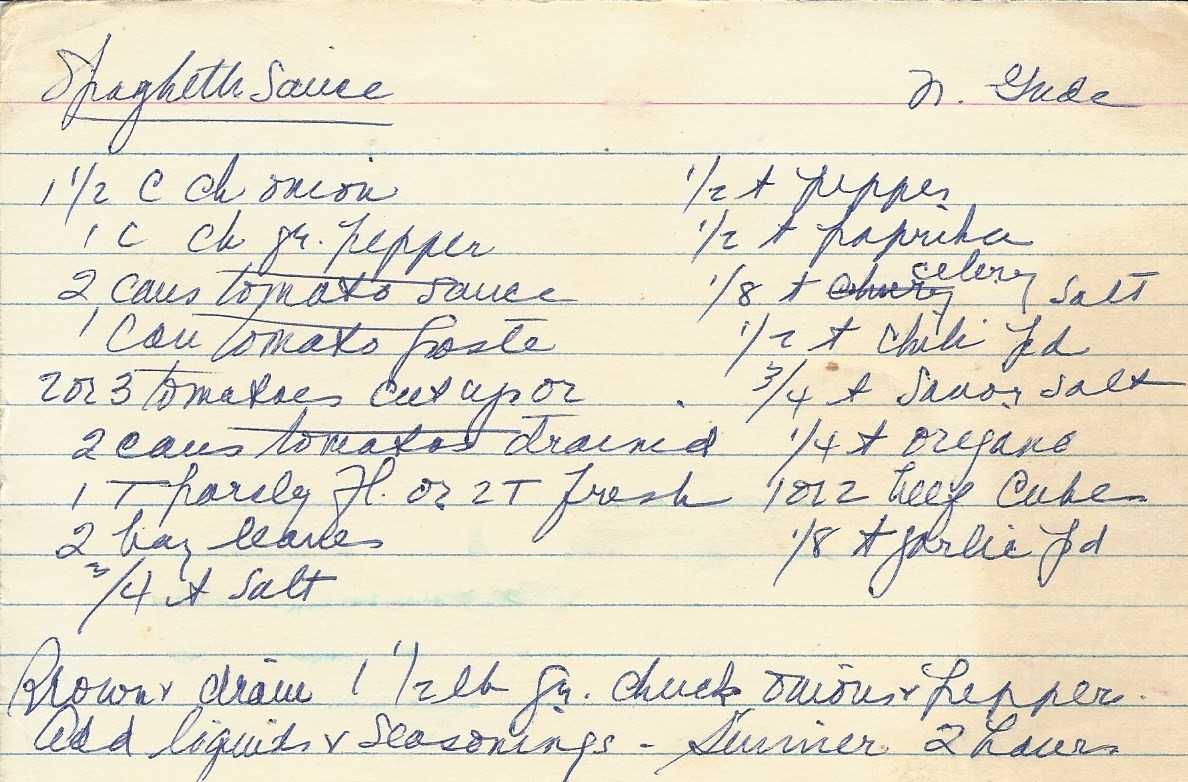 Spaghetti Sauce
N. Gude
1 1/2 C ch onion
1 C ch gr. pepper
2 cans tomato sauce
1 can tomato paste
2 or 3 tomatoes cut up or
2 cans tomatoes drained
1 T parsley Fl. or 2 T fresh
2 bay leaves
3/4 t salt
1/2 t pepper
1/2 t paprika
1/8 t celery salt
1/2 t chili pd
3/4 t Savor salt
1/4 t oregano
1 or 2 beef cubes
1/8 t garlic pd
Brown & drain 1 1/2 lb gr. chuck onions & peppers.
Add liquids & seasonings - Simmer 2 hours